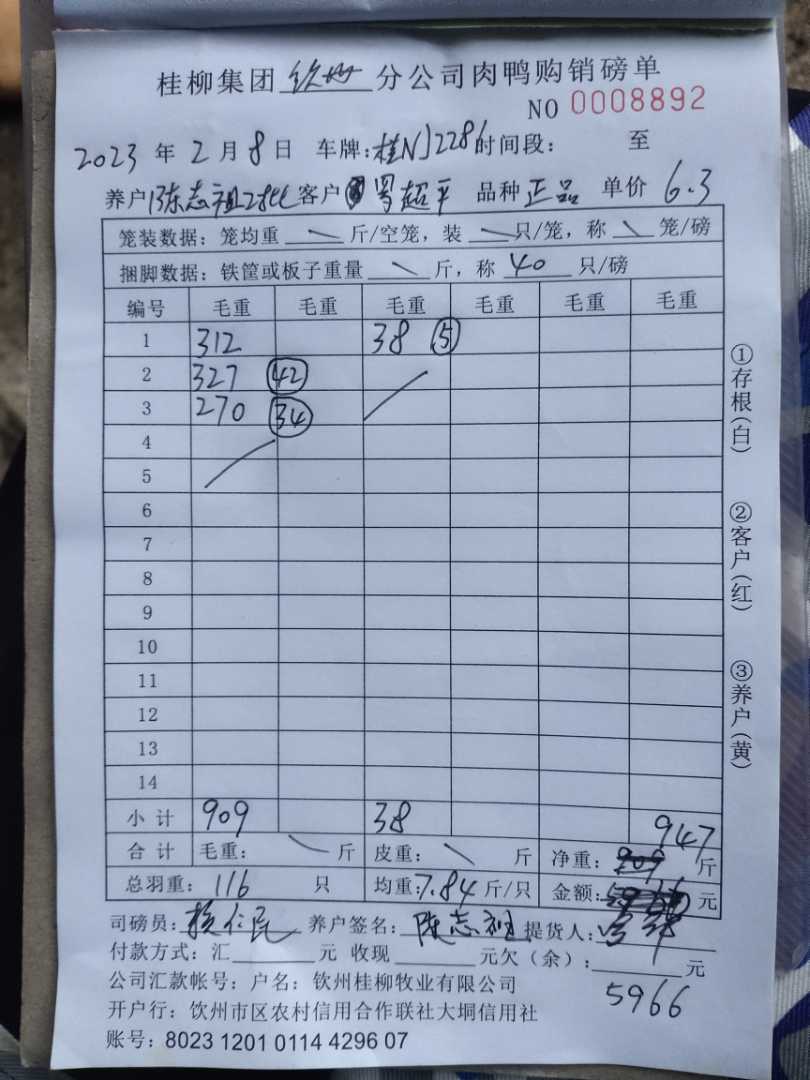 桂柳集团 钦州 分公司肉鸭购销磅单
NO 0008892
2023 年 2 月 8 日 车牌:桂NJ2286 时间段: 至
养户 陈志祖 客户 超平 品种 正品 单价 6.3
笼装数据：笼均重 \ 斤/空笼，装 \ 只/笼，称 \ 笼/磅
捆脚数据：铁筐或板子重量 \ 斤，称 40 只/磅
编号 毛重 毛重 毛重 毛重 毛重 毛重
1 312 38 5
2 327 42
3 270 34
4
5
6
7
8
9
10
11
12
13
14
小计 909 38 947
合计 毛重: \ 斤 皮重: \ 斤 净重: 斤
总羽重: 116 只 均重:7.84 斤/只 金额: 元
司磅员: 仁民 养户签名: 陈志祖 提货人:
付款方式: 汇 元 收现 元欠（余）: 元
5966
公司汇款帐号: 户名: 钦州桂柳牧业有限公司
开户行: 钦州市区农村信用合作联社大垌信用社
账号: 8023 1201 0114 4296 07
①存根(白)
②客户(红)
③养户(黄)